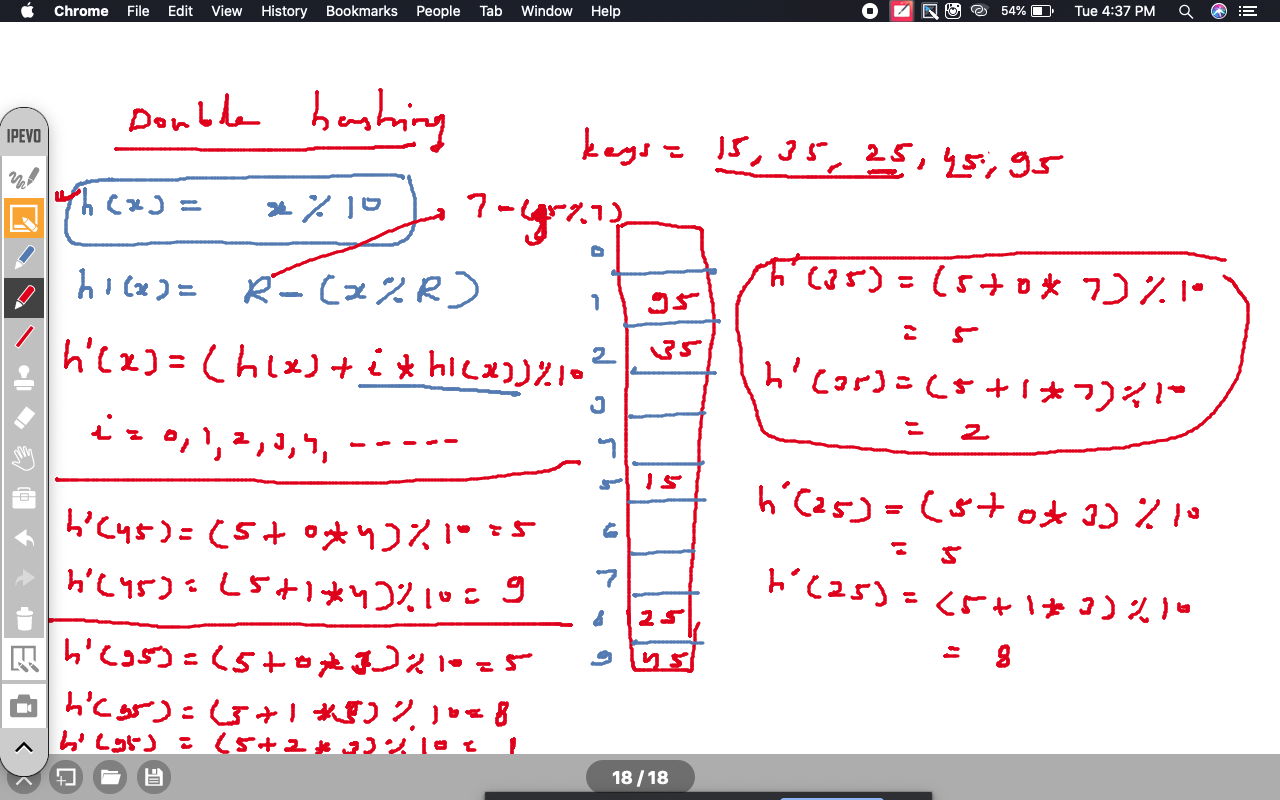 Chrome File Edit View History Bookmarks People Tab Window Help 54% Tue 4:37 PM
IPEVO
Double hashing
keys = 15, 35, 25, 45, 95
h(x) = x % 10
7-(95%7)
h1(x) = R-(x%R)
h'(x) = (h(x) + i * h1(x)) % 10
i = 0, 1, 2, 3, 4, -----
h'(45) = (5+0*4)%10 = 5
h'(45) = (5+1*4)%10 = 9
h'(95) = (5+0*3)%10 = 5
h'(95) = (5+1*3)%10 = 8
h'(95) = (5+2*3)%10 = 1
0
1 95
2 35
3
4
5 15
6
7
8 25
9 45
h'(35) = (5+0*7)%10
= 5
h'(35) = (5+1*7)%10
= 2
h'(25) = (5+0*3)%10
= 5
h'(25) = (5+1*3)%10
= 8
18 / 18